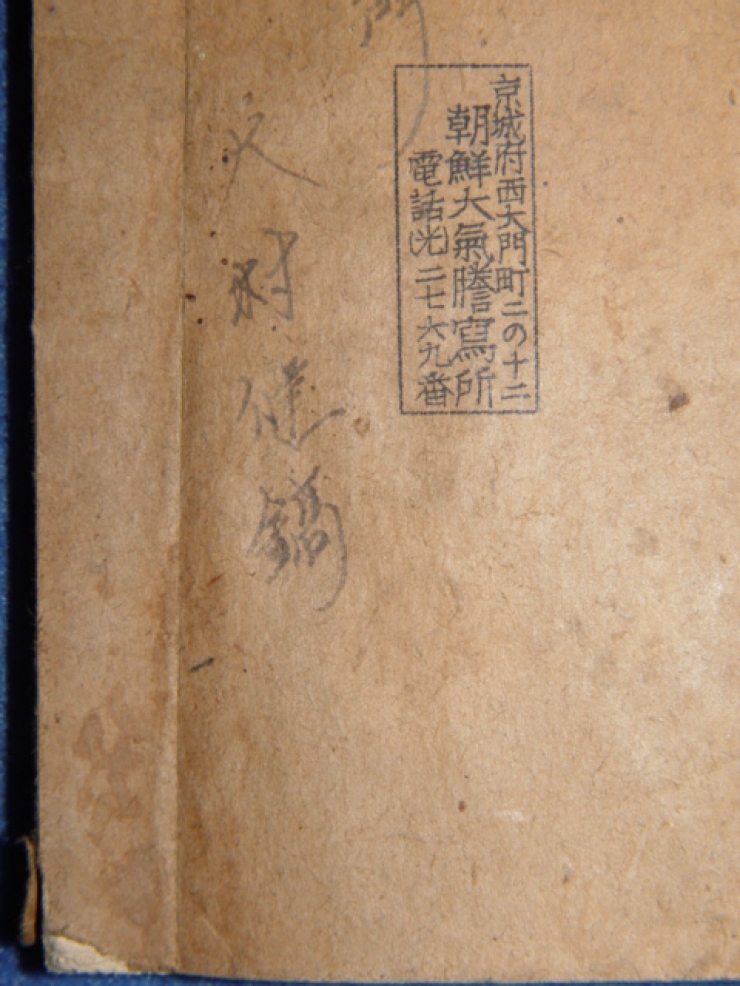 京城府西大門町二の十二
朝鮮大氣謄寫所
電話(光)二七六九番
村健鎬